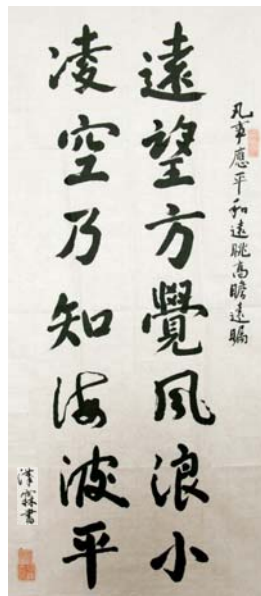 凡事應平和遠眺高瞻遠瞩
遠望方覺風浪小
凌空乃知海波平
漢霖書